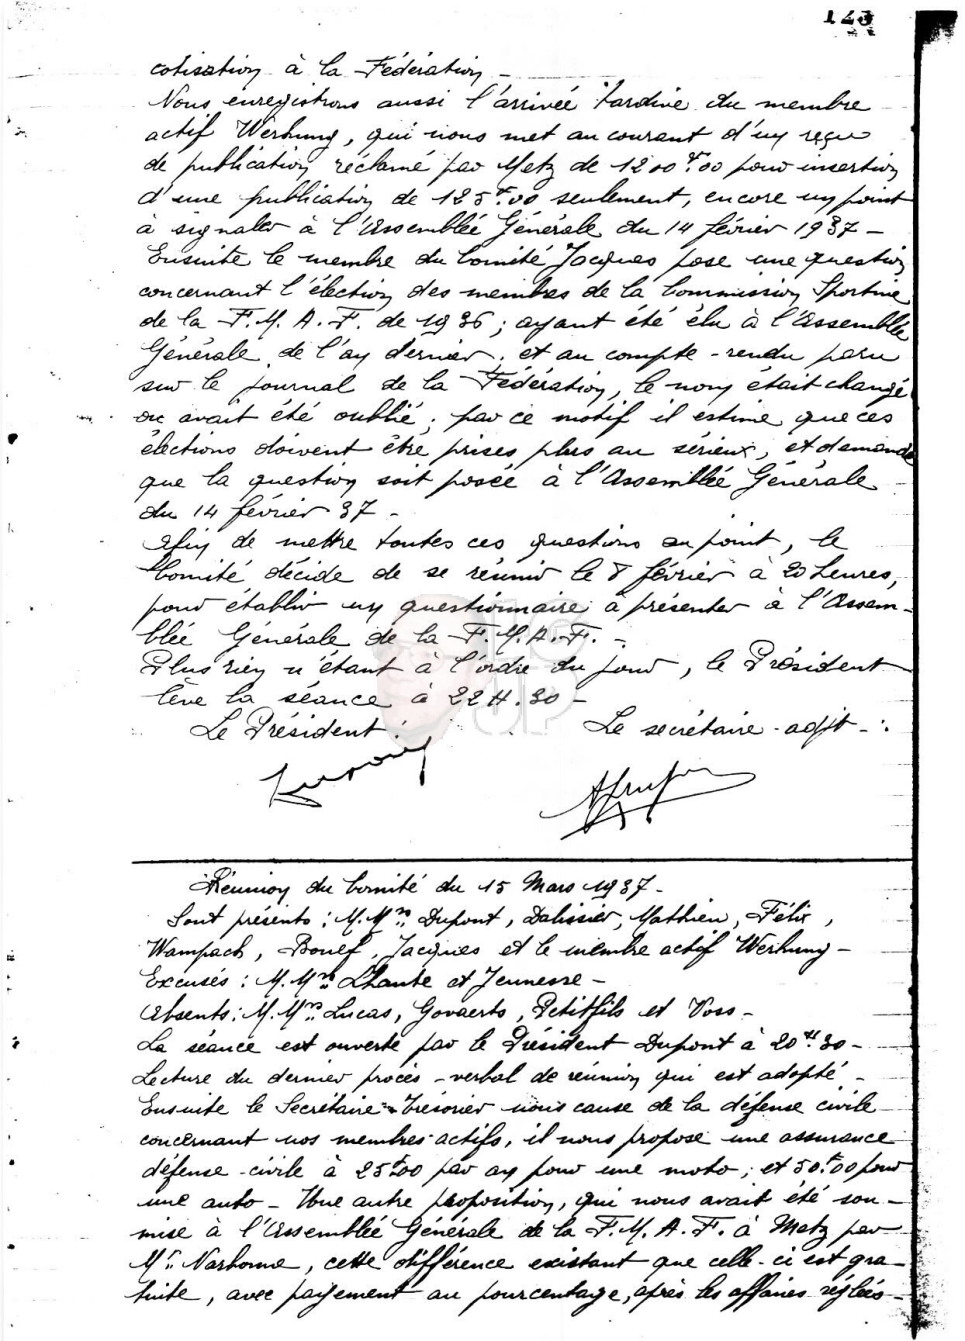 123
cotisation à la Fédération –
Nous enregistrons aussi l'arrivée tardive du membre
actif Werhung, qui nous met au courant d'un reçu
de publication réclamé par Metz de 1200fr.00 pour insertion
d'une publication de 125fr.00 seulement, encore un point
à signaler à l'Assemblée Générale du 14 février 1937 –
Ensuite le membre du Comité Jacques pose une question
concernant l'élection des membres de la Commission Sportive
de la F.M.A.F. de 1936; ayant été élu à l'Assemblée
Générale de l'an dernier, et au compte-rendu paru
sur le journal de la Fédération, le nom était changé
ou avait été oublié; par ce motif il estime que ces
élections doivent être prises plus au sérieux, et demande
que la question soit posée à l'Assemblée Générale
du 14 février 37 –
Afin de mettre toutes ces questions au point, le
Comité décide de se réunir le 8 février à 20 heures,
pour établir un questionnaire à présenter à l'Assem-
blée Générale de la F.M.A.F. –
Plus rien n'étant à l'ordre du jour, le Président
lève la séance à 22H.30 –
Le Président : Le secrétaire-adjt - :
Réunion du Comité du 15 Mars 1937 –
Sont présents : M.Mrs Dupont, Dalissier, Mathieu, Félix,
Wampach, Bonef, Jacques et le membre actif Werhung –
Excusés : M.Mrs Lhante et Jeunesse –
Absents : M.Mrs Lucas, Govaerts, Petitfils et Voss –
La séance est ouverte par le Président Dupont à 20H.30 –
Lecture du dernier procès-verbal de réunion qui est adopté –
Ensuite le Secrétaire-Trésorier nous cause de la défense civile
concernant nos membres actifs, il nous propose une assurance
défense-civile à 25fr.00 par an pour une moto, et 50fr.00 pour
une auto – Une autre proposition, qui nous avait été sou-
mise à l'Assemblée Générale de la F.M.A.F. à Metz par
Mr. Narbonne, cette différence existant que celle-ci est gra-
tuite, avec payement au pourcentage, après les affaires réglées –